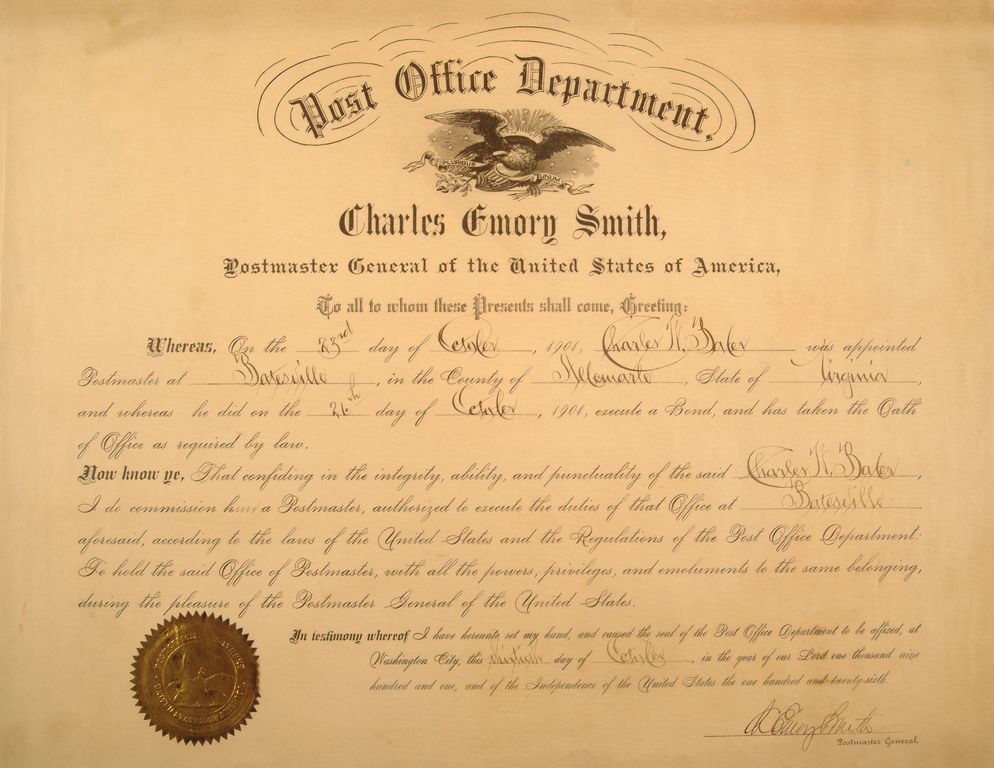 Post Office Department.
PLURIBUS UNUM
Charles Emory Smith,
Postmaster General of the United States of America,
To all to whom these Presents shall come, Greeting:
Whereas, On the 23rd day of October, 1901, Charles W. Baber was appointed
Postmaster at Batesville, in the County of Albemarle, State of Virginia,
and whereas he did on the 26th day of October, 1901, execute a Bond, and has taken the Oath
of Office as required by law.
Now know ye, That confiding in the integrity, ability, and punctuality of the said Charles W. Baber,
I do commission him a Postmaster, authorized to execute the duties of that Office at Batesville
aforesaid, according to the laws of the United States and the Regulations of the Post Office Department:
To hold the said Office of Postmaster, with all the powers, privileges, and emoluments to the same belonging,
during the pleasure of the Postmaster General of the United States.
In testimony whereof I have hereunto set my hand, and caused the seal of the Post Office Department to be affixed, at
Washington City, this thirtieth day of October, in the year of our Lord one thousand nine
hundred and one, and of the Independence of the United States the one hundred and twenty-sixth.
Ch Emory Smith
Postmaster General.